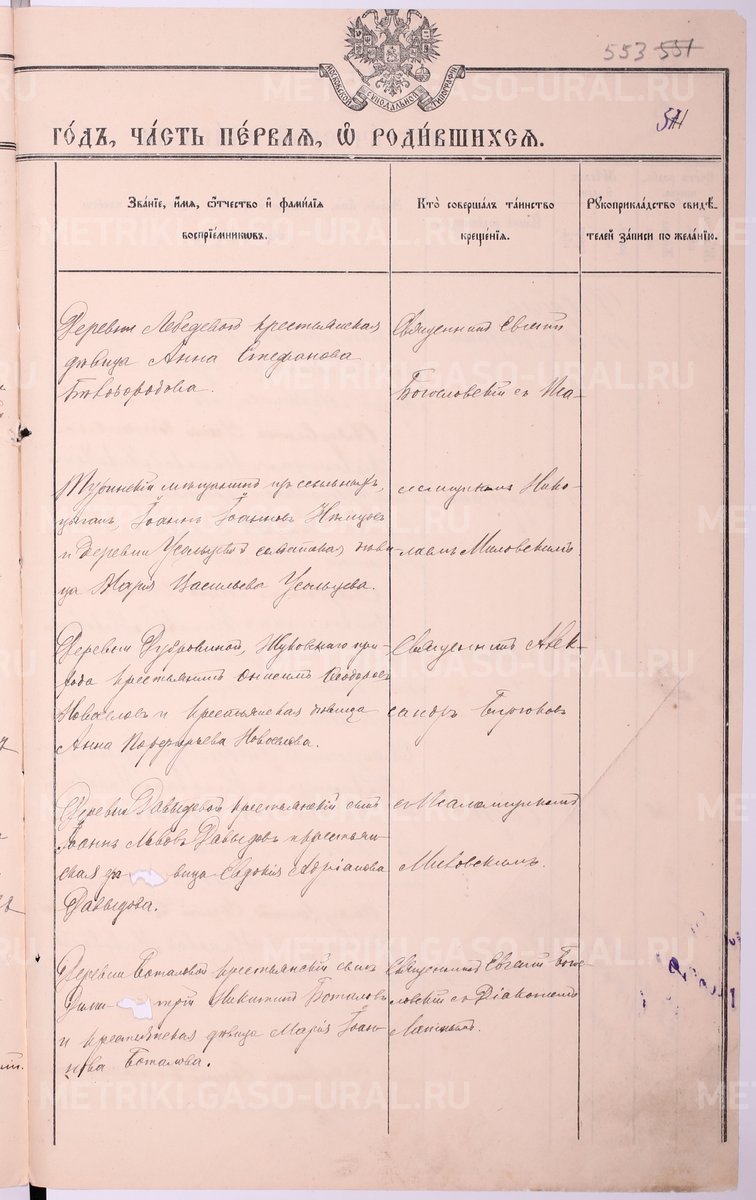 553 551
МОСКОВСКОЙ СѴНОДАЛЬНОЙ ТИПОГРАФІИ
511
ГО́ДЪ, ЧА́СТЬ ПЕ́РВАЯ, Ѽ РОДИ́ВШИХСЯ.
Зва́нїе, и҆́мя, ѻ҆́тчество и҆ фами́лїя
воспрїе́мниковъ.
Кто̀ соверша́лъ та́инство
креще́нїя.
Рꙋкоприкла́дство свидѣ́-
телей за́писи по жела́нїю.
Деревни Лебедевой крестьянская
дѣвица Анна Стефанова
Бѣлобородова.
Священникъ Евгеній
Богословскій съ Пса-
Туринскій мѣщанинъ изъ ссыльныхъ
цыганъ, Іоаннъ Іоанновъ Немцовъ
и деревни Усольцевой солдатская дѣви-
ца Марія Васильева Усольцева.
ломщикомъ Нико-
лаемъ Миловскимъ
Деревни Дубровиной, Жуковскаго при-
хода крестьянинъ Онисимъ Ѳеодоровъ
Новоселовъ и крестьянская дѣвица
Анна Порфирьева Новоселова.
Священникъ Алек-
сандръ Бирюковъ
Деревни Давыдовой крестьянскій сынъ
Іоаннъ Львовъ Давыдовъ и крестьян-
ская дѣвица Евдокія Адріанова
Давыдова.
съ Псаломщикомъ
Миловскимъ.
Деревни Боталовой крестьянскій сынъ
Дими-трій Никитинъ Боталовъ
и крестьянская дѣвица Марія Іоан-
нова Боталова.
Священникъ Евгеній Бого-
словскій съ Діакономъ
METRIKI.GASO-URAL.RU